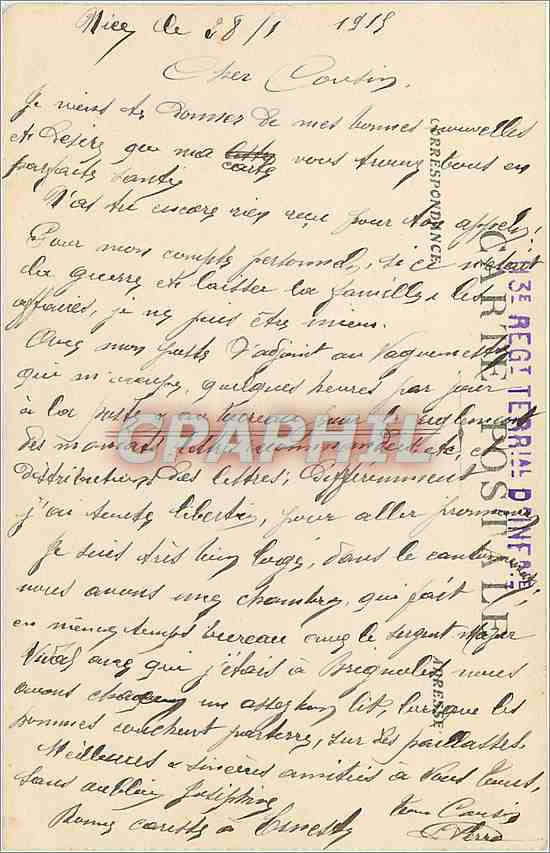 Nice, le 28/1 1915
Cher Cousin,
Je viens te donner de mes bonnes nouvelles
et désire que ma carte vous trouve tous en
parfaite santé
N'as tu encore rien reçu pour ton appel?
Pour mon compte personnel, si ce n'était
la guerre et laisser la famille & les
affaires, je ne puis être mieux.
Avec mon poste d'adjoint au Vaguemestre
qui m'occupe quelques heures par jour
à la poste & au bureau pour le
des mandats, lettres recommandées etc, et
distributions des lettres; différemment
j'ai toute liberté, pour aller promener
Je suis très bien logé, dans le cantonnement,
nous avons une chambre, qui fait
en même temps bureau avec le sergent Major
Vidal avec qui j'étais à Brignoles, nous
avons chacun un assez bon lit, lorsque les
hommes couchent par terre, sur des paillasses.
Meilleures & sincères amitiés à Vous tous,
sans oublier Joséphine
Bonne caresse à Ernest
Ton Cousin
CORRESPONDANCE
CARTE POSTALE
ADRESSE
3E REGT TERRIAL D'INFIE
CPAPHIL